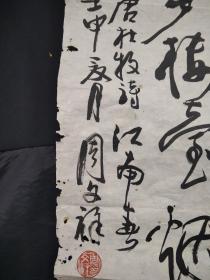 樓臺烟
唐杜牧詩江南春
壬申夏月周文祥